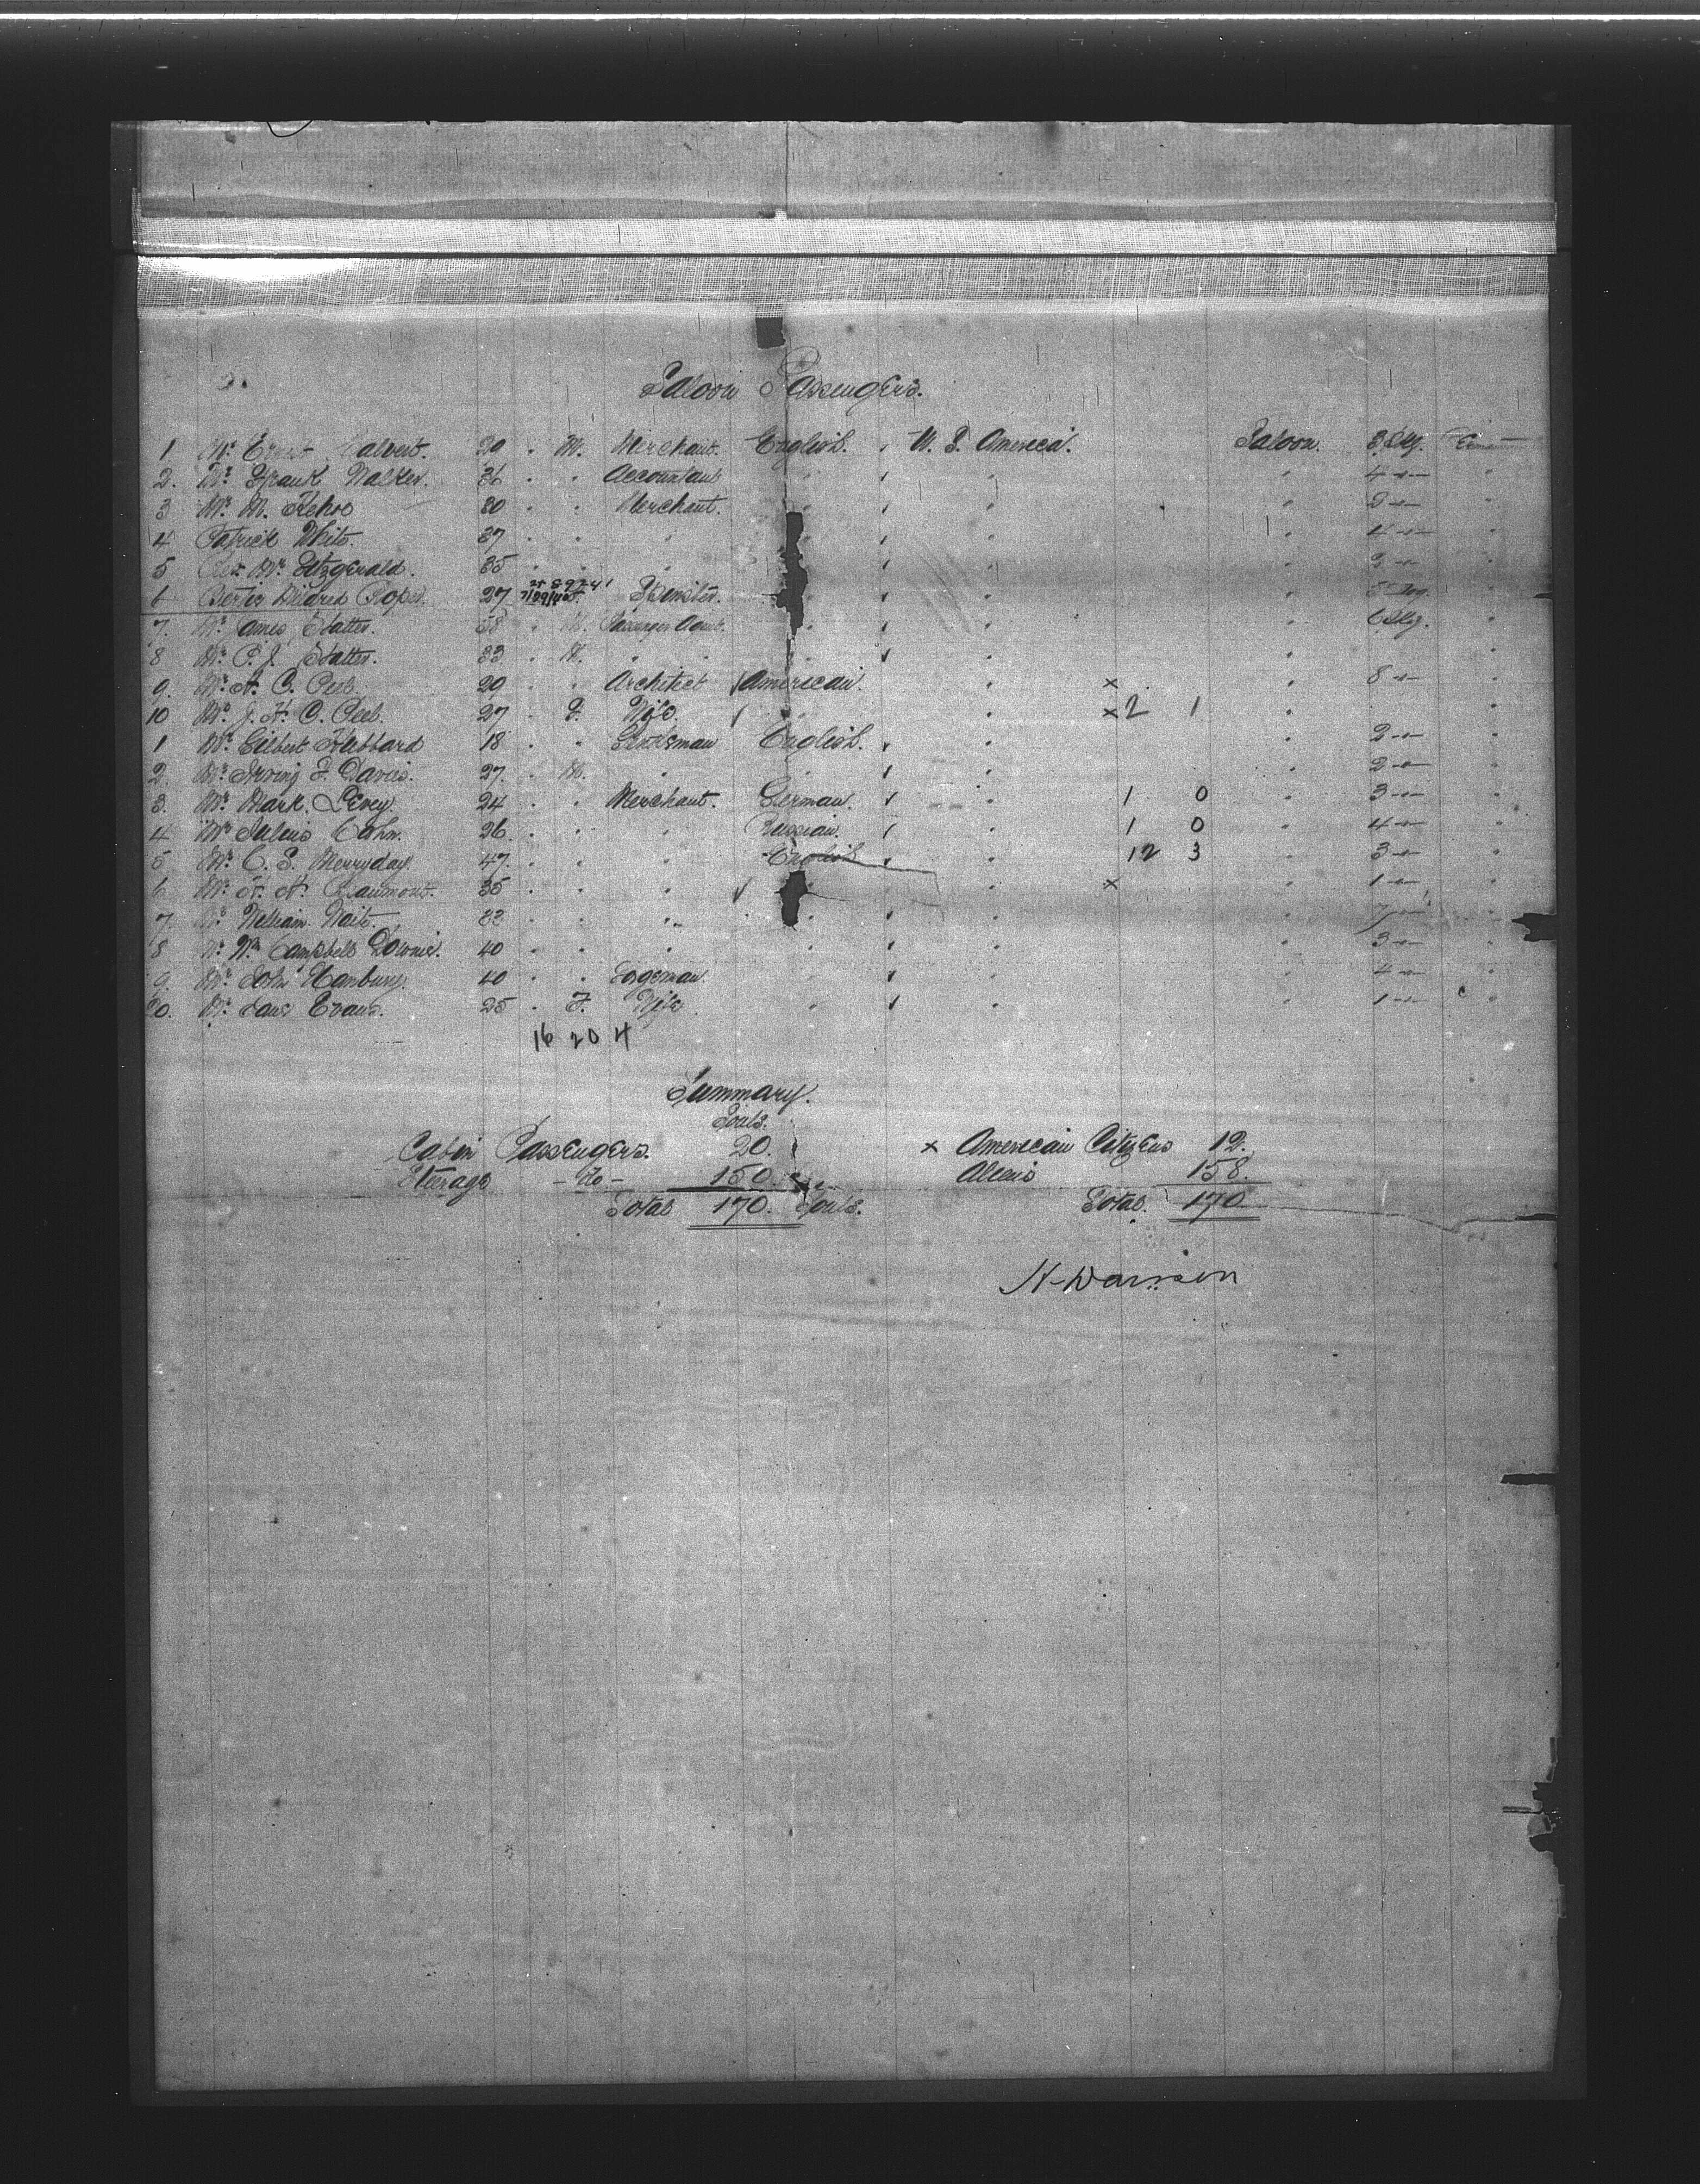 Saloon Passengers.
1 Mr. Ernest Calvert. 29 " M. Merchant. English. " U. S. America. Saloon. 3 Pkg.
2. Mr. Frank Walker. 36 " " Accountant " " " " 4 "
3 Mr. M. Kehoe 30 " " Merchant. " " " "
4 Patrick White. 37 " " " " " " 4 "
5 Mr. Fitzgerald. 35 " " " " " "
6 Mildred Roper. 27 Spinster. " " "
7. Mr. Amos Hatter. 58 " M. Passenger Agent. " " " 6 Pkg.
8 Mr. P. J. Hatter. 33 " M. " " " "
9. Mr. A. C. 29 " " Architect American. " x " 8 "
10 27 " F. Wife. " " x 2 1 "
1 Mr. Gilbert Hubbard 18 " " Gentleman English. " " 2 "
2. Mr. Irving F. Davis. 27. " M. " " " " 2 "
3. Mr. Mark Levey 24 " " Merchant. German. " 1 0 " 3 "
4 Mr. Julius Cohn. 26 " " " Russian. " 1 0 " 4 "
5 Mr. C. S. Merryday. 47. " " " English " 12 3 " 3 "
6 Beaumont. 35 " " " " " x " 1 "
7. Mr. William Waite. 33 " " " " " " 7 "
8 Mr. Wm Campbell Downie. 40 " " " " " " 3 "
9. Mr. John Hanbury. 40 " " Forgeman. " " " 4 "
20. Jane Evans. 25 " F. Wife " " " 1 "
16 20 4
Summary.
Souls.
Cabin Passengers. 20. x American Citizens 12.
Steerage - do - 150. Aliens 158.
Total 170. Souls. Total. 170